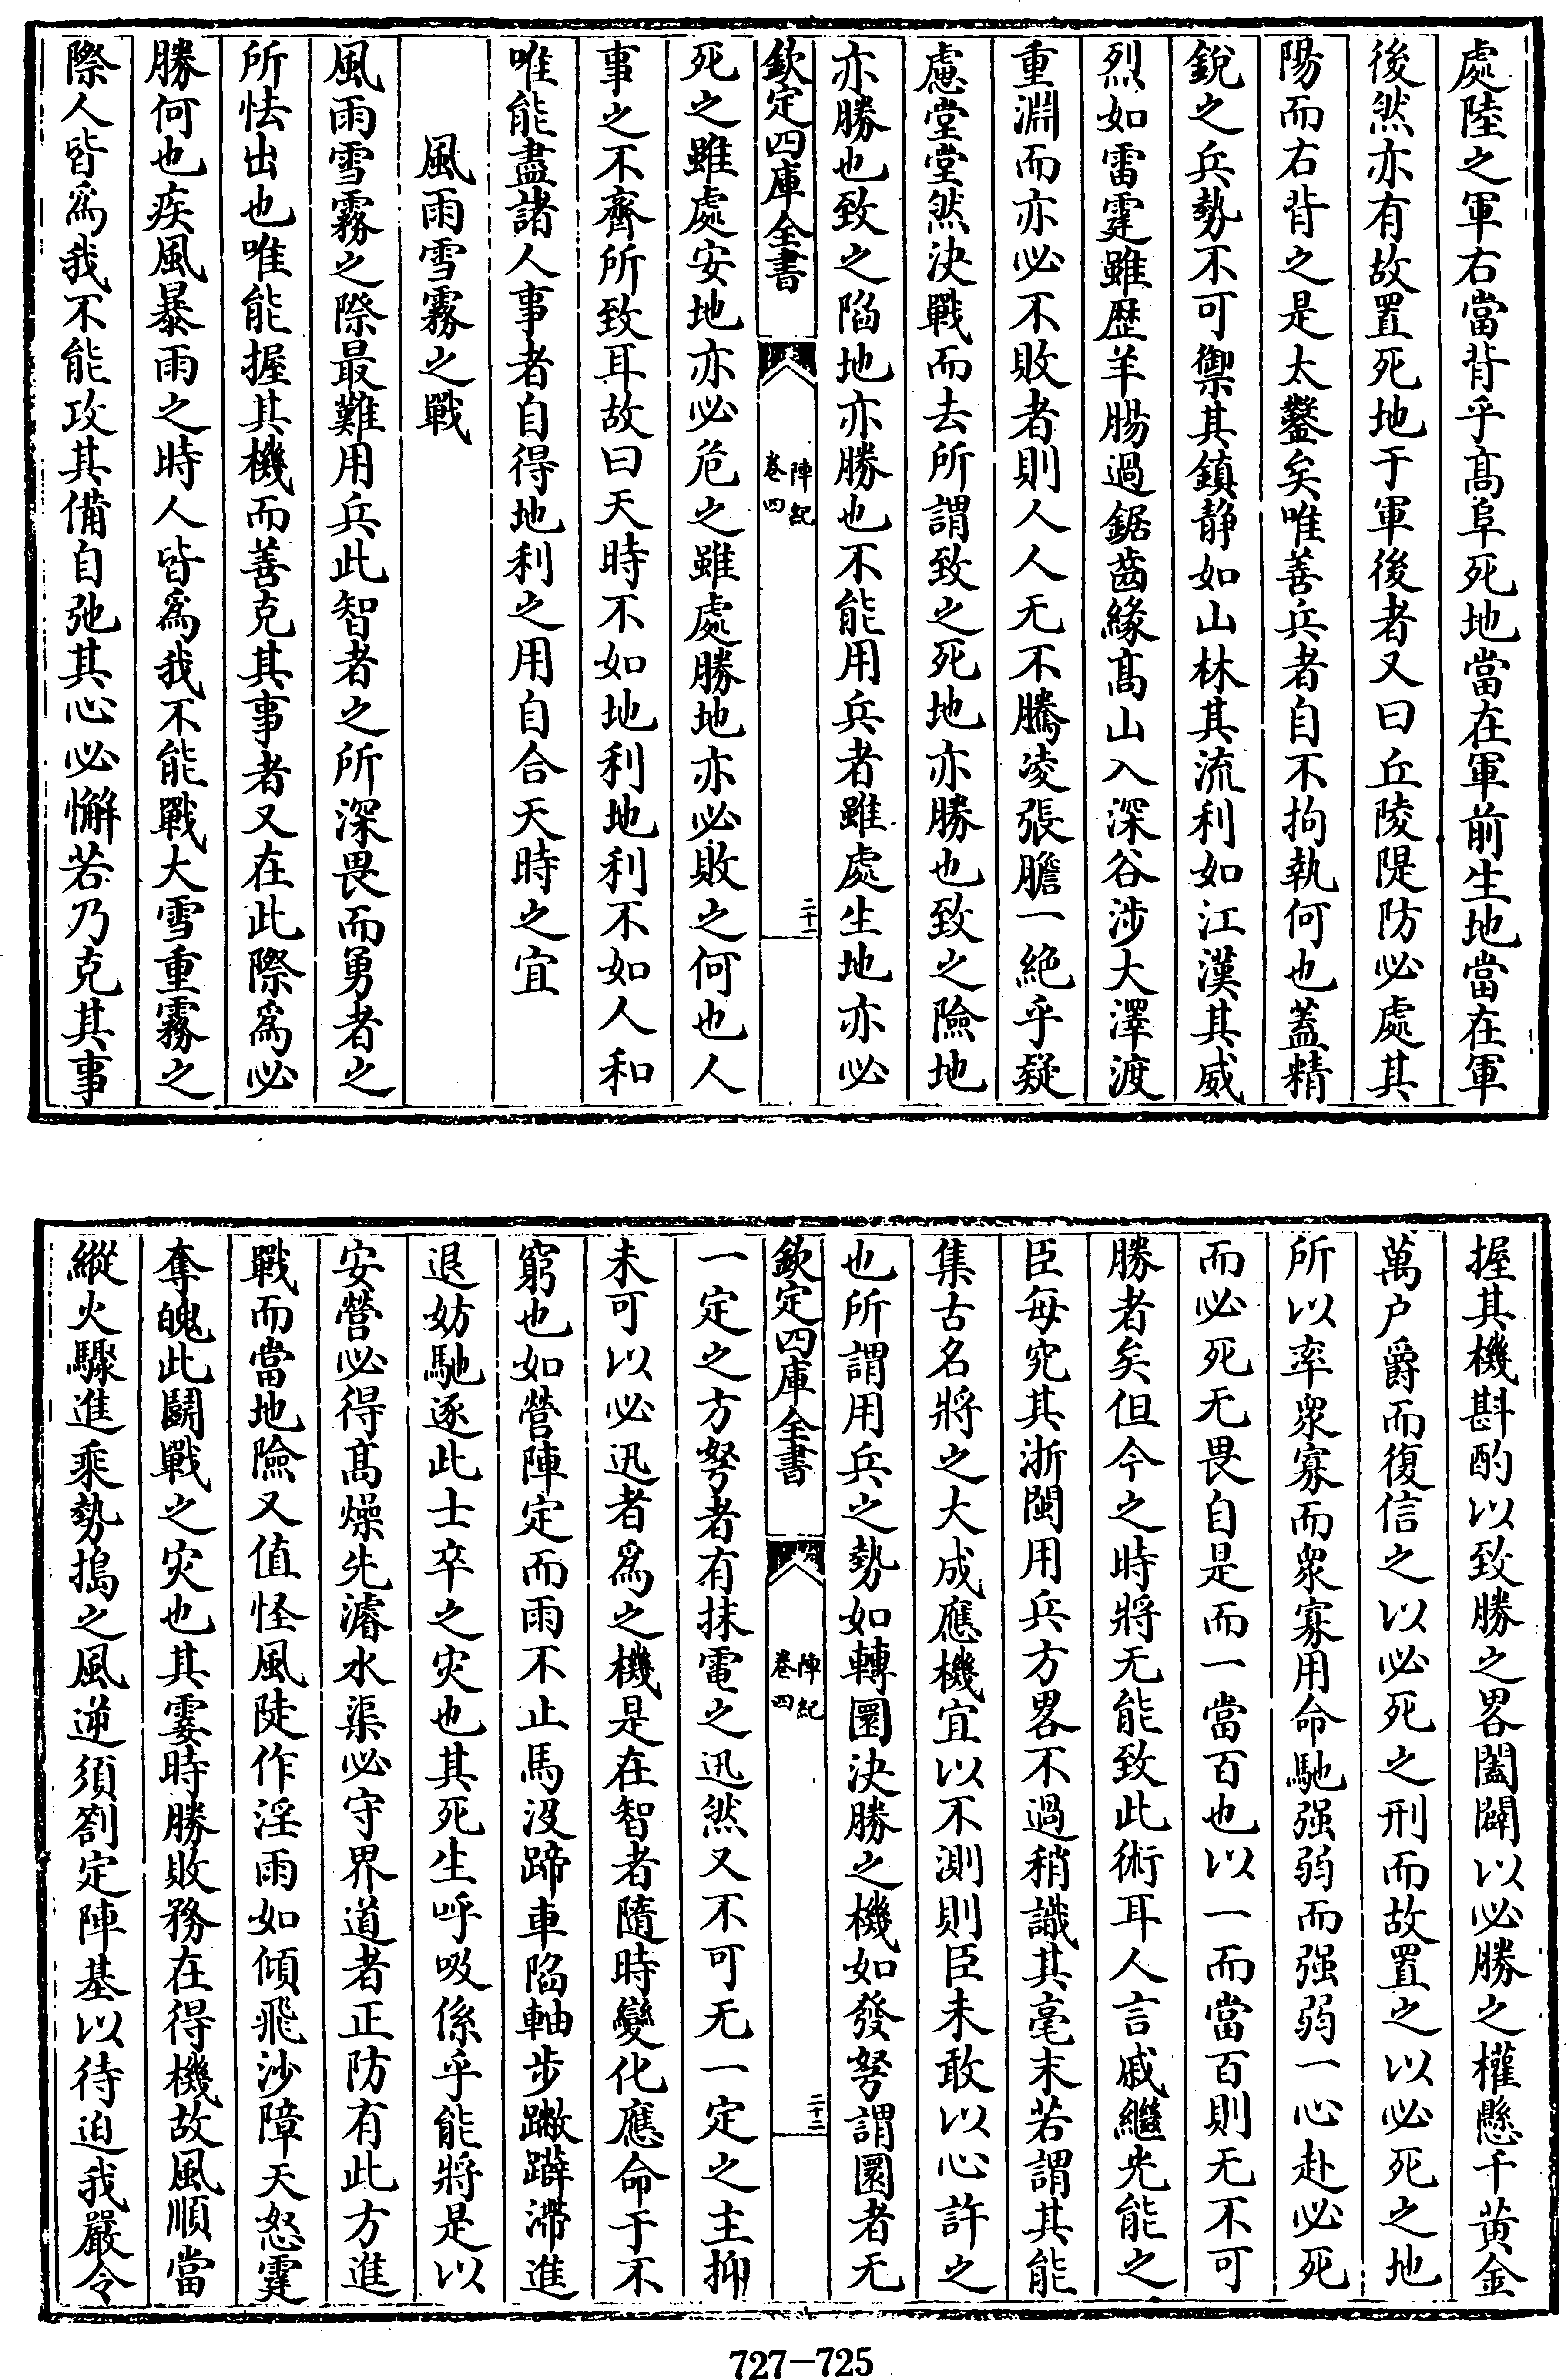 處陸之軍右當背乎髙阜死地當在軍前生地當在軍
後然亦有故置死地于軍後者又曰丘陵隄防必處其
陽而右背之是太鑿矣唯善兵者自不拘執何也葢精
銳之兵勢不可禦其鎮静如山林其流利如江漢其威
烈如雷霆雖歴羊腸過鋸齒緣髙山入深谷涉大澤渡
重淵而亦必不敗者則人人无不騰凌張膽一絶乎疑
慮堂堂然決戰而去所謂致之死地亦勝也致之險地
亦勝也致之陷地亦勝也不能用兵者雖處生地亦必
欽定四庫全書
陣紀
卷四
二十一
死之雖處安地亦必危之雖處勝地亦必敗之何也人
事之不齊所致耳故曰天時不如地利地利不如人和
唯能盡諸人事者自得地利之用自合天時之宜
風雨雪霧之戰
風雨雪霧之際最難用兵此智者之所深畏而勇者之
所怯出也唯能握其機而善克其事者又在此際爲必
勝何也疾風暴雨之時人皆爲我不能戰大雪重霧之
際人皆爲我不能攻其備自弛其心必懈若乃克其事
握其機斟酌以致勝之畧闔闢以必勝之權懸千黄金
萬户爵而復信之以必死之刑而故置之以必死之地
所以率衆寡而衆寡用命馳强弱而强弱一心赴必死
而必死无畏自是而一當百也以一而當百則无不可
勝者矣但今之時將无能致此術耳人言戚繼光能之
臣每究其浙閩用兵方畧不過稍識其毫末若謂其能
集古名將之大成應機宜以不測則臣未敢以心許之
也所謂用兵之勢如轉圜決勝之機如發弩謂圜者无
欽定四庫全書
陣紀
卷四
二十二
一定之方弩者有抹電之迅然又不可无一定之主抑
未可以必迅者爲之機是在智者隨時變化應命于不
窮也如營陣定而雨不止馬沒蹄車陷軸步蹶躃滯進
退妨馳逐此士卒之灾也其死生呼吸係乎能將是以
安營必得髙燥先濬水渠必守界道者正防有此方進
戰而當地險又值怪風陡作淫雨如傾飛沙障天怒霆
奪魄此鬭戰之灾也其霎時勝敗務在得機故風順當
縱火驟進乘勢搗之風逆須劄定陣基以待迫我嚴令
727－725